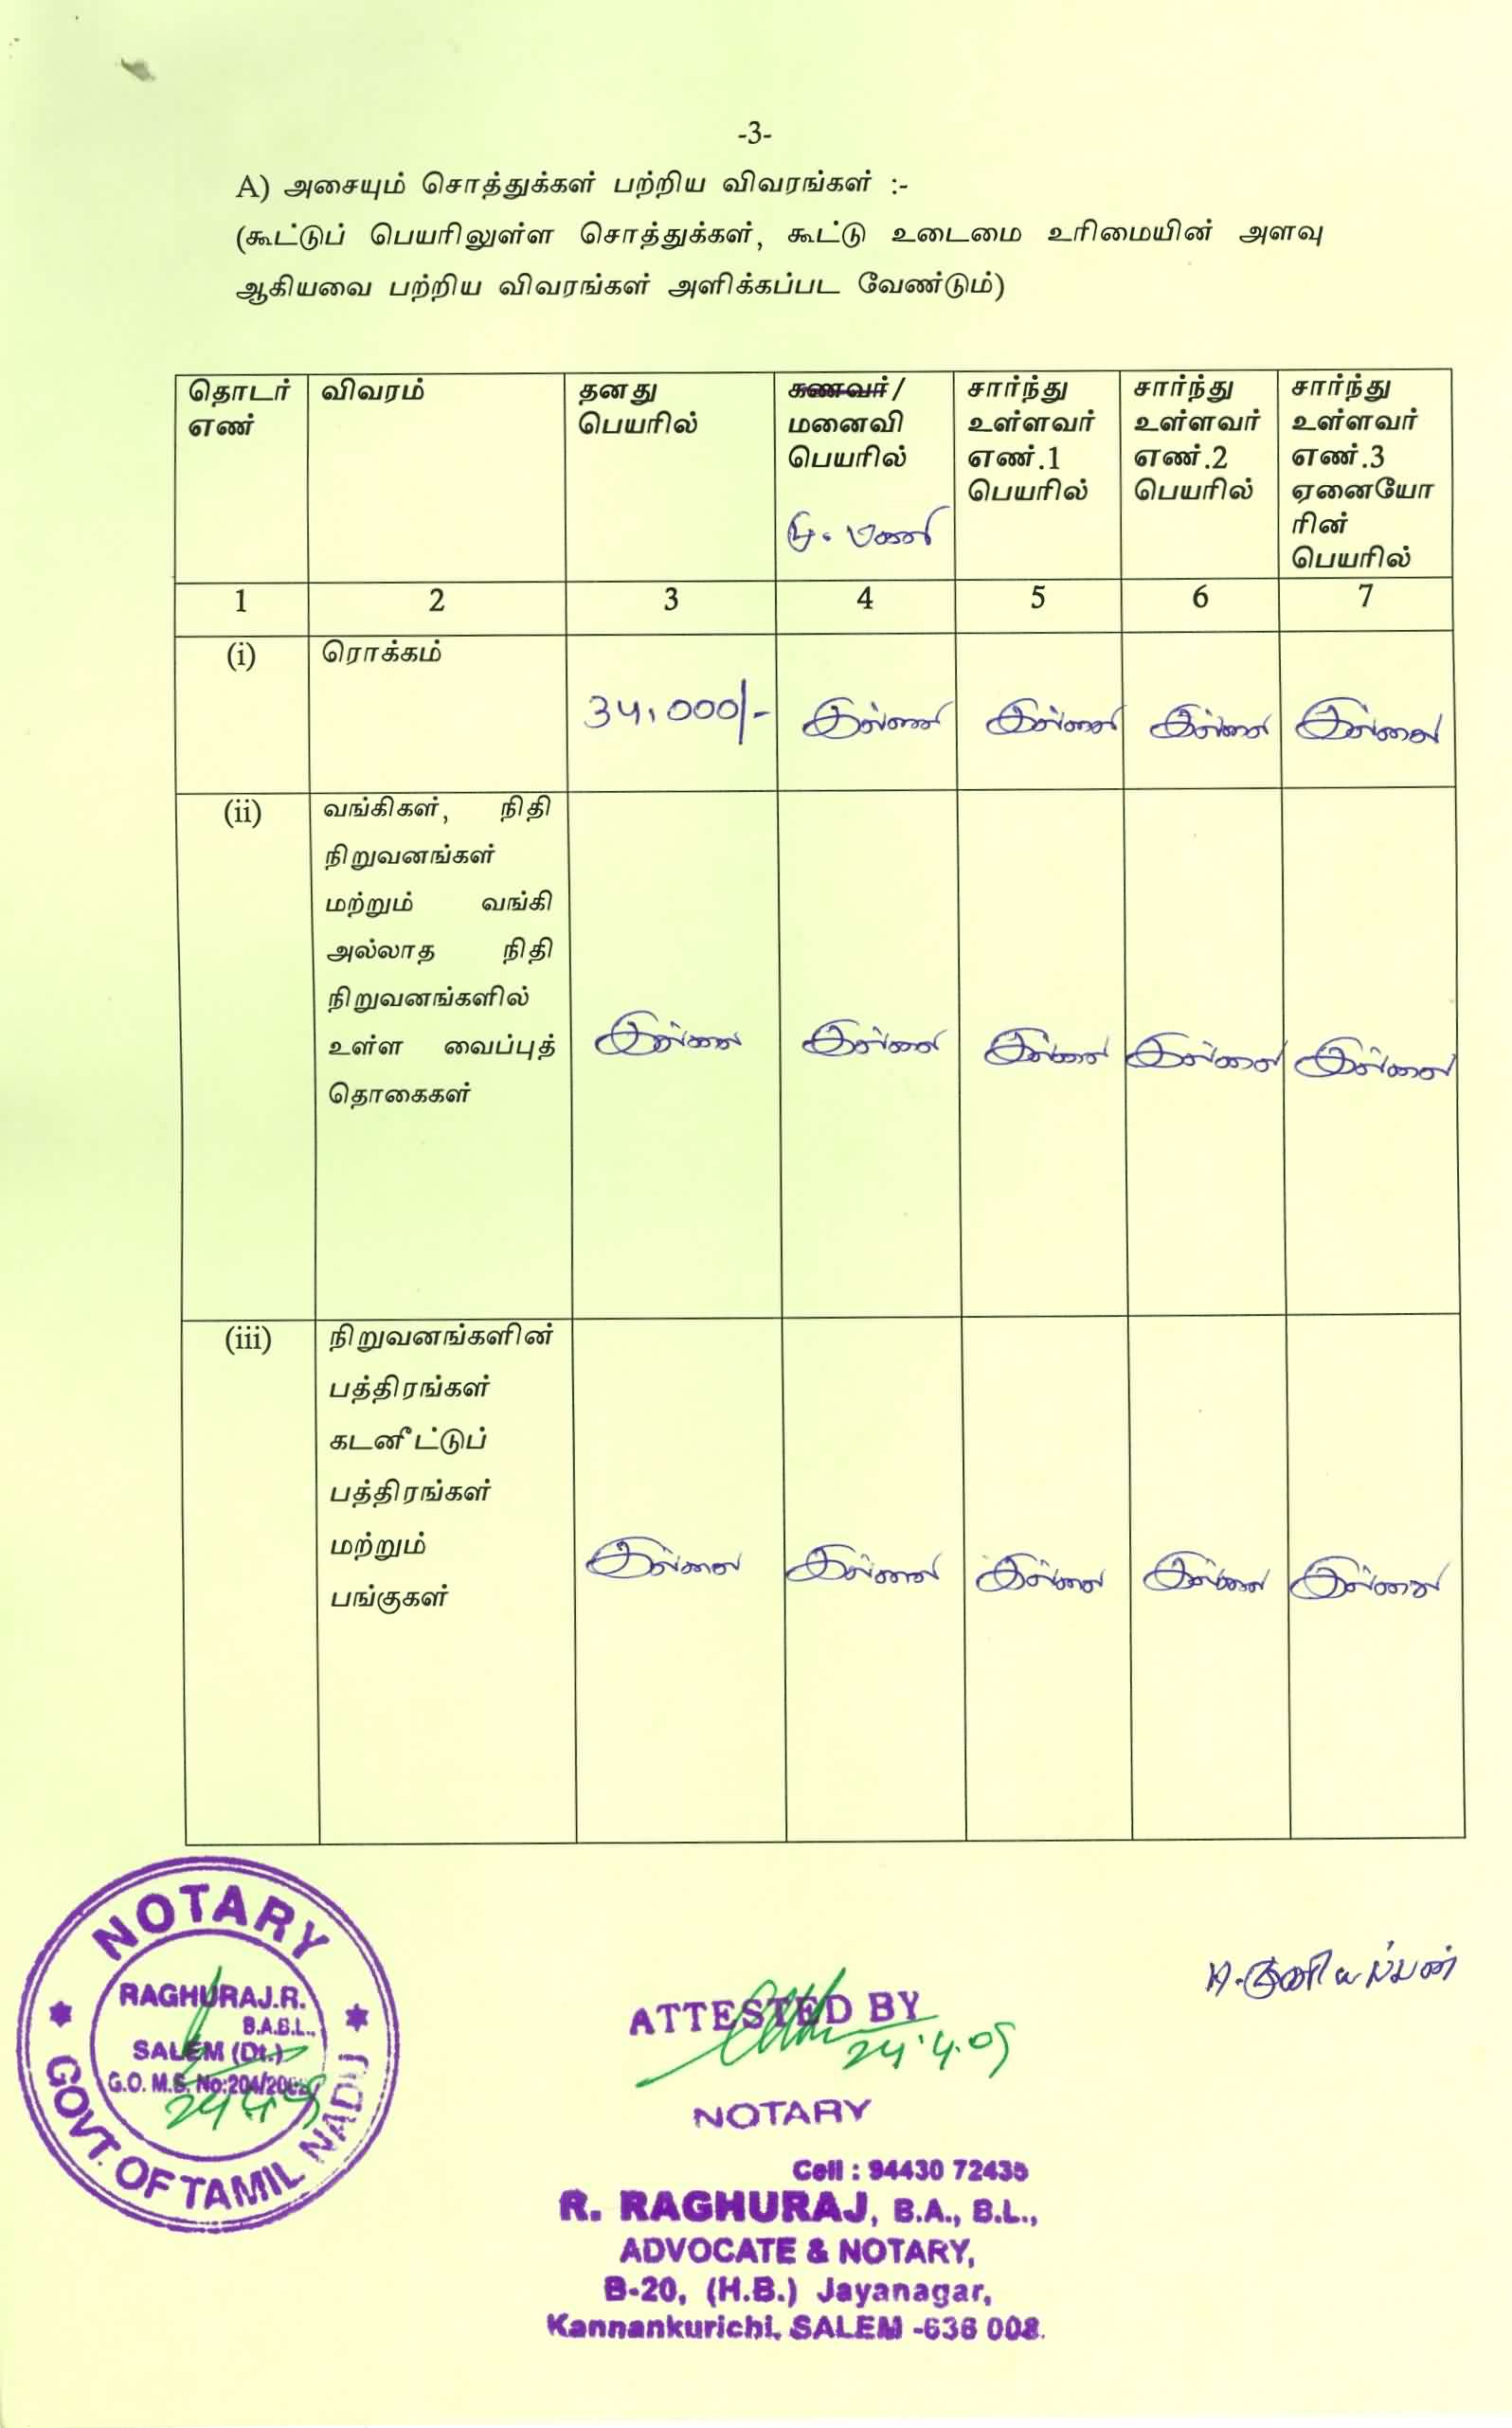 -3-
A) அசையும் சொத்துக்கள் பற்றிய விவரங்கள் :-
(கூட்டுப் பெயரிலுள்ள சொத்துக்கள், கூட்டு உடைமை உரிமையின் அளவு
ஆகியவை பற்றிய விவரங்கள் அளிக்கப்பட வேண்டும்)
தொடர் எண்
விவரம்
தனது பெயரில்
கணவர்/
மனைவி
பெயரில்
சார்ந்து
உள்ளவர்
எண்.1
பெயரில்
சார்ந்து
உள்ளவர்
எண்.2
பெயரில்
சார்ந்து
உள்ளவர்
எண்.3
ஏனையோ
ரின்
பெயரில்
1 2 3 4 5 6 7
(i) ரொக்கம்
34,000/- இல்லை இல்லை இல்லை இல்லை
(ii) வங்கிகள், நிதி
நிறுவனங்கள்
மற்றும் வங்கி
அல்லாத நிதி
நிறுவனங்களில்
உள்ள வைப்புத்
தொகைகள்
இல்லை இல்லை இல்லை இல்லை இல்லை
(iii) நிறுவனங்களின்
பத்திரங்கள்
கடனீட்டுப்
பத்திரங்கள்
மற்றும்
பங்குகள்
இல்லை இல்லை இல்லை இல்லை இல்லை
NOTARY
RAGHURAJ.R.
B.A.B.L.,
SALEM (Dt.)
G.O. M.S. No:204/2002
GOVT. OF TAMIL NADU
ATTESTED BY
24.4.09
NOTARY
Cell : 94430 72435
R. RAGHURAJ, B.A., B.L.,
ADVOCATE & NOTARY,
B-20, (H.B.) Jayanagar,
Kannankurichi, SALEM -636 008.